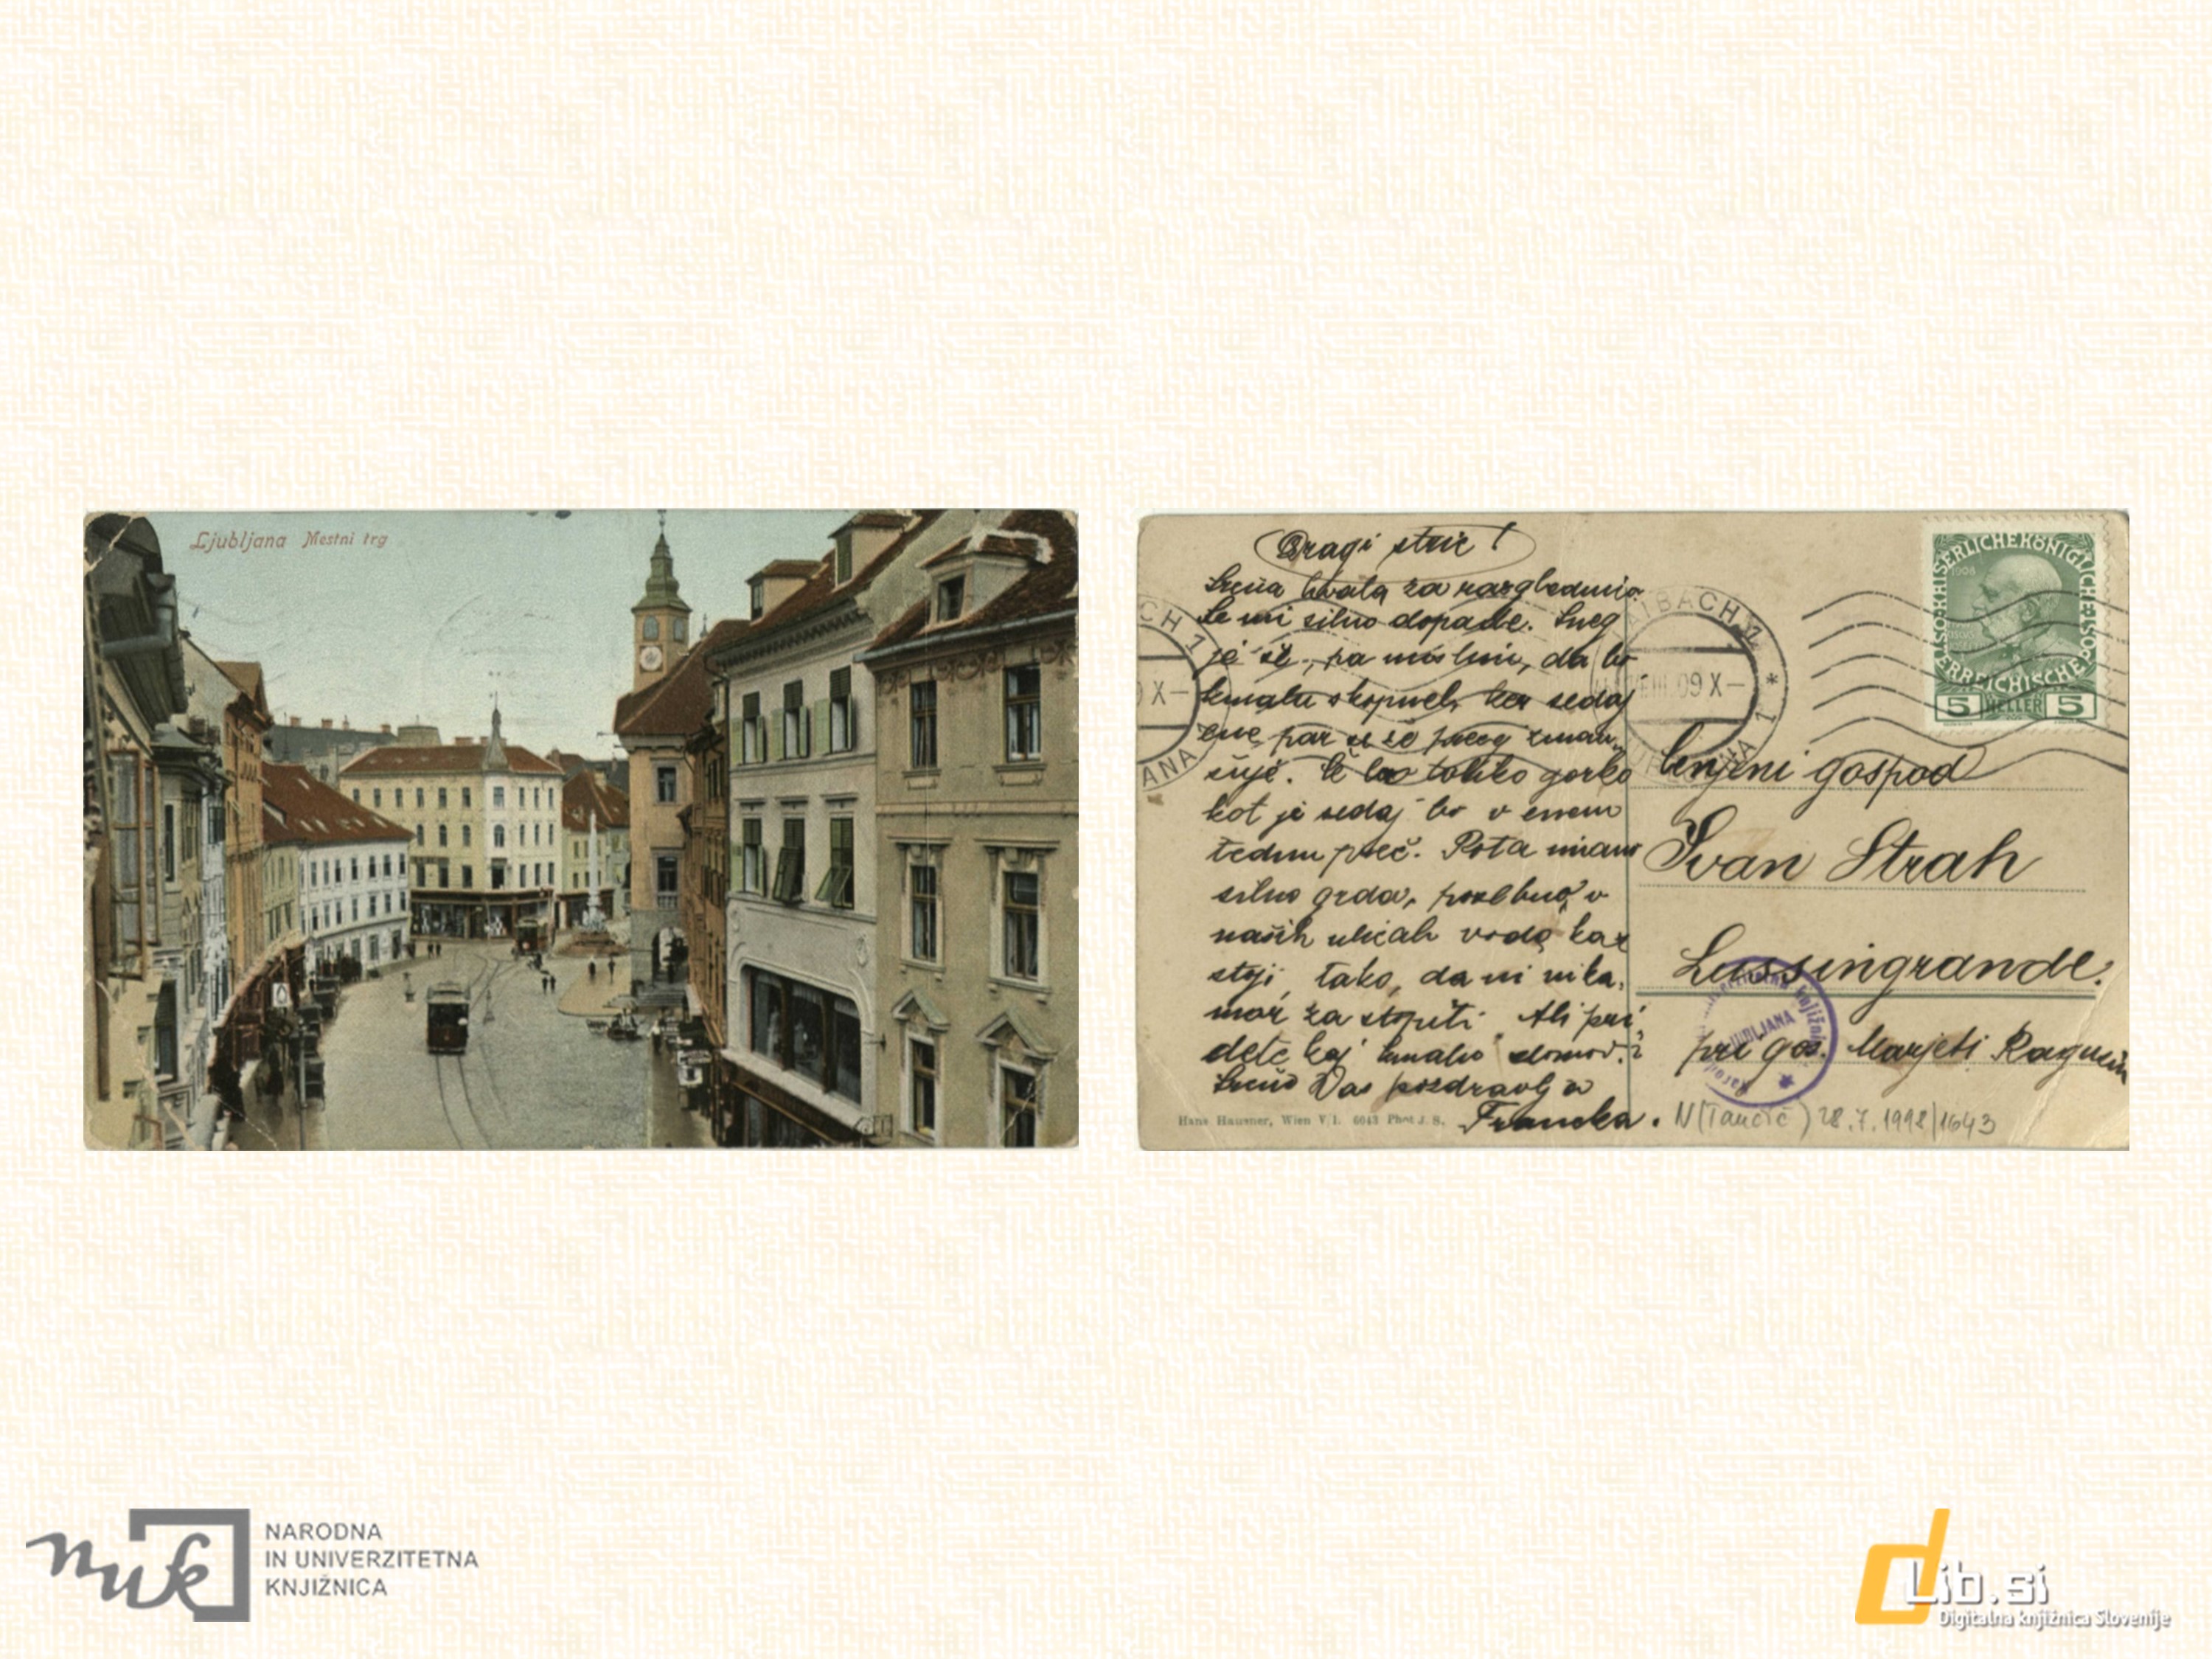 Ljubljana Mestni trg
Dragi stric!
Srčna hvala za razglednico.
Se mi silno dopade. Sneg
je še, pa mislim, da bo
kmalu skopnel, ker sedaj
ene par se še precej zman-
šuje. Če bo toliko gorko
kot je sedaj bo v enem
tednu preč. Pota imamo
silno grda, posebno v
naših ulicah voda kar
stoji, tako, da ni nika-
mor za stopiti. Ali pri-
dete kaj kmalu domov?
Srčno Vas pozdravlja
Francka.
Hans Hausner, Wien V/1. 6043 Phot J. S.
LAIBACH 1
09 X
LJUBLJANA 1
KAISERLICHE KÖNIGLICHE
ÖSTERREICHISCHE POST
1908
5 HELLER 5
Cenjeni gospod
Ivan Strah
Lussingrande.
pri gos. Marjeti Ragusin
LJUBLJANA
N(Tančič) 28.7.1998/1643
nuk
NARODNA
IN UNIVERZITETNA
KNJIŽNICA
dLib.si
Digitalna knjižnica Slovenije